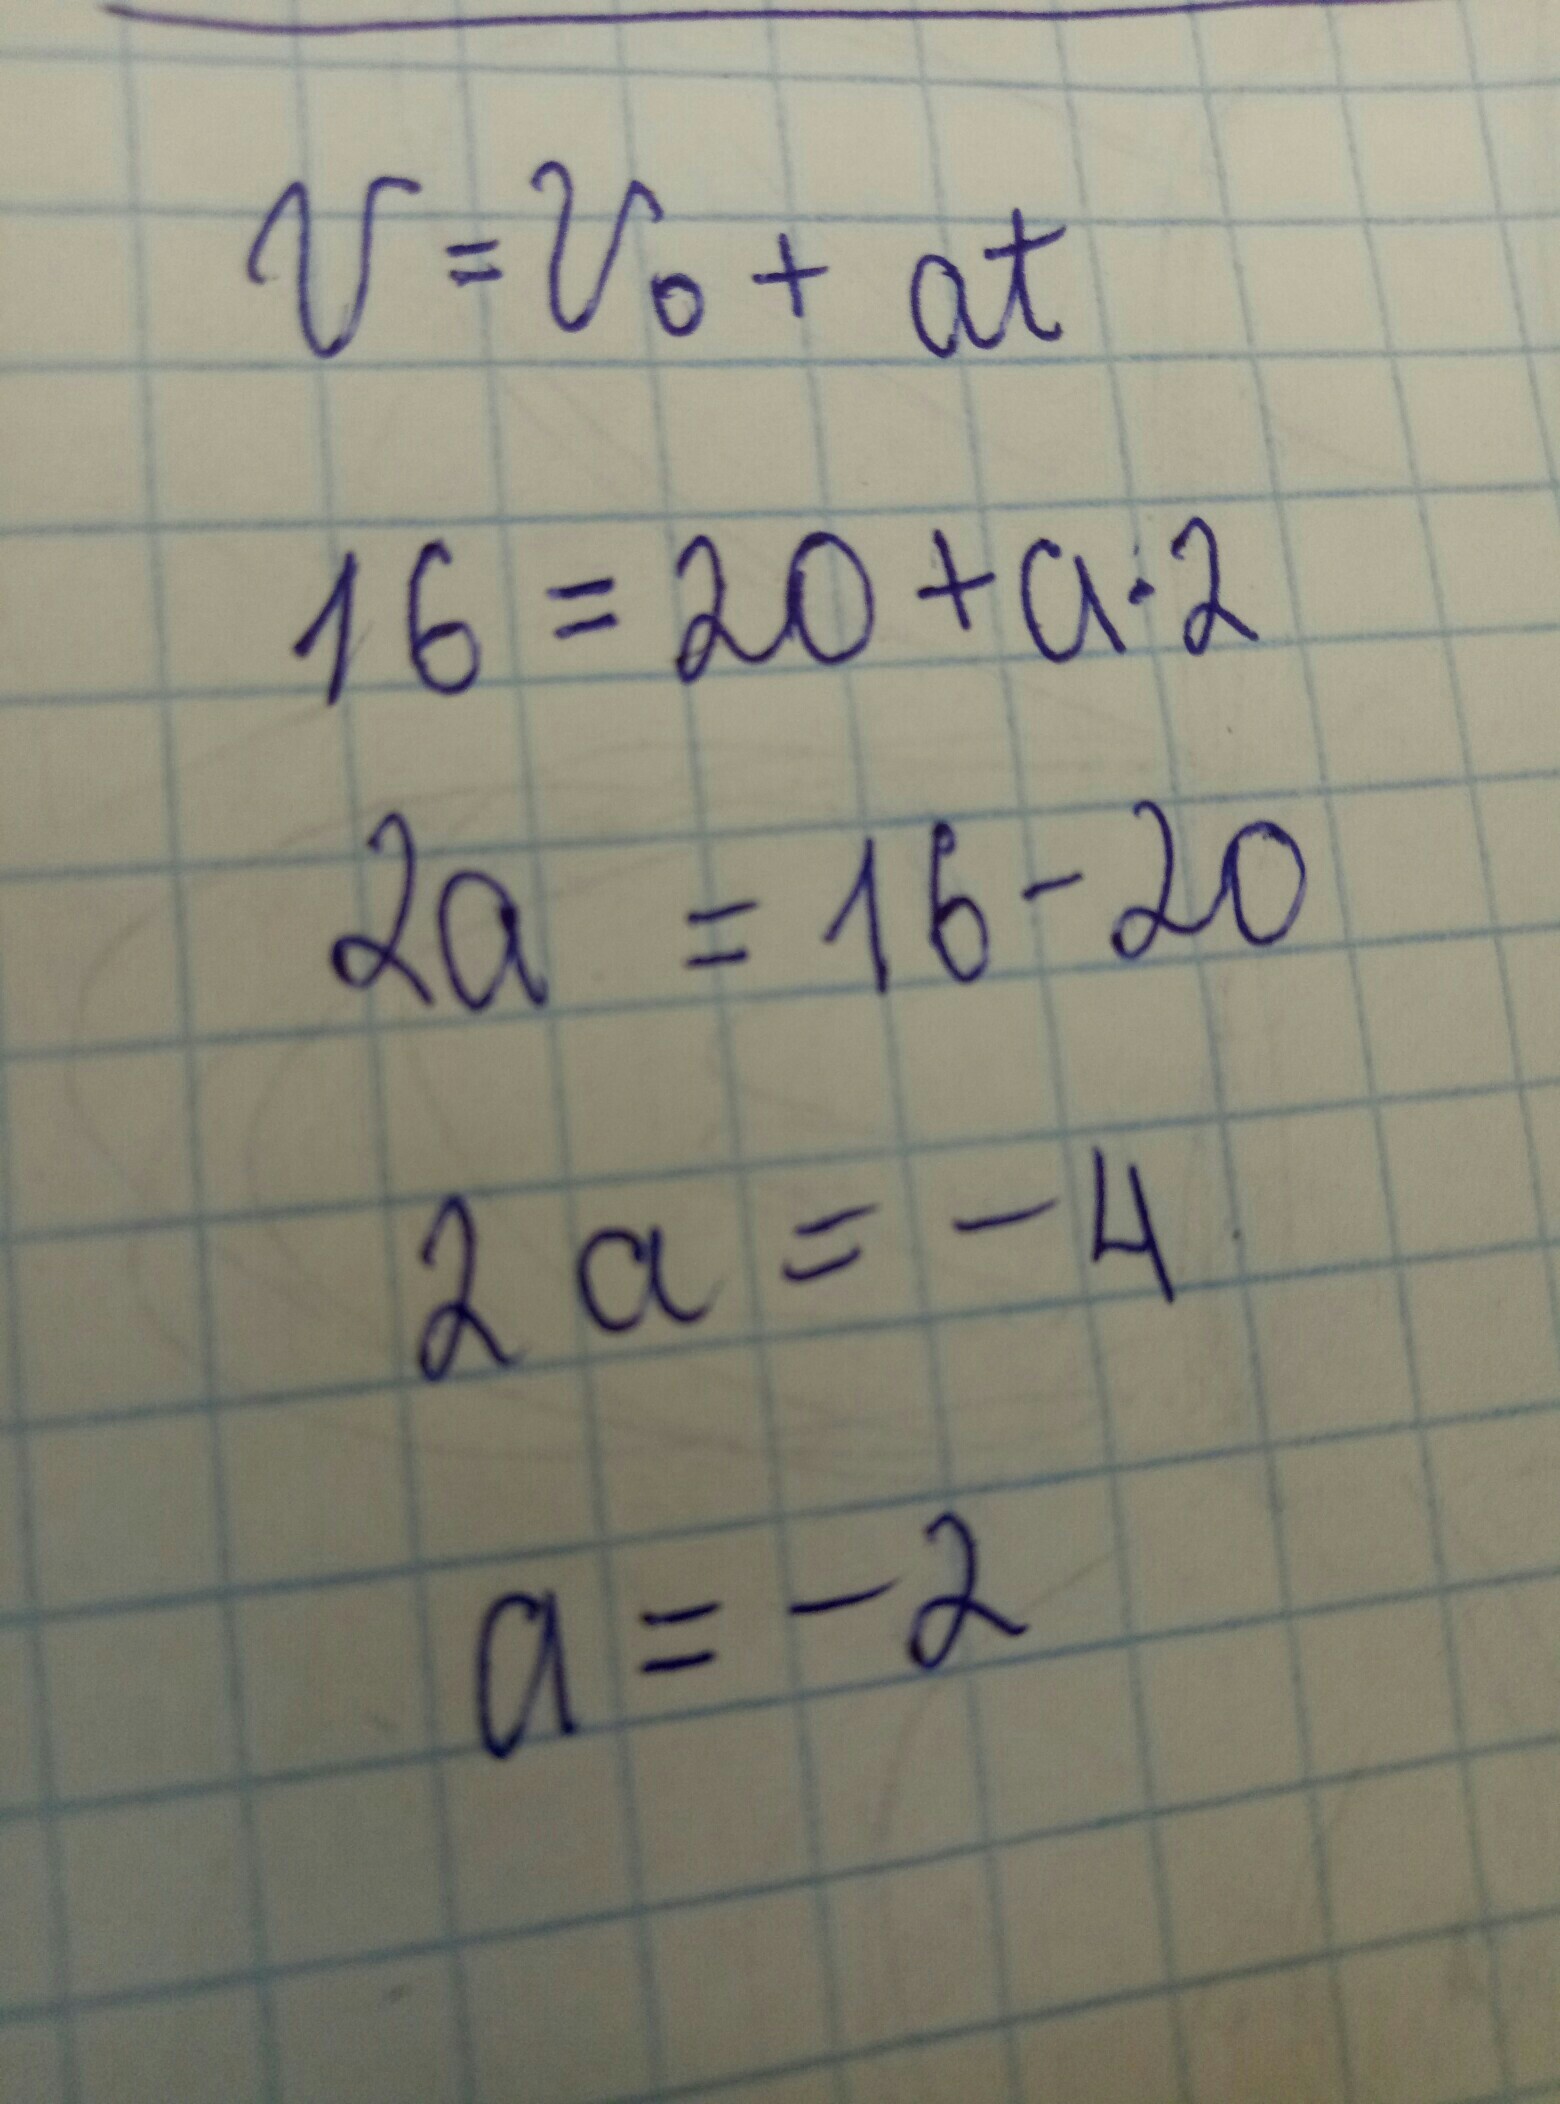 v = v₀ + at
16 = 20 + a · 2
2a = 16 - 20
2a = -4
a = -2